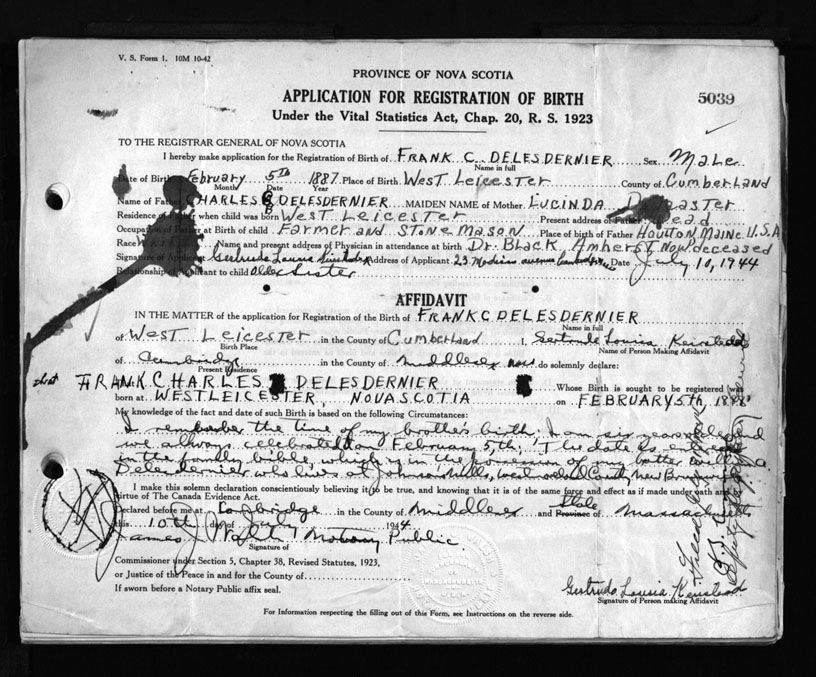 V. S. Form 1. 10M 10-42
PROVINCE OF NOVA SCOTIA
APPLICATION FOR REGISTRATION OF BIRTH
5039
Under the Vital Statistics Act, Chap. 20, R. S. 1923
TO THE REGISTRAR GENERAL OF NOVA SCOTIA
I hereby make application for the Registration of Birth of FRANK C. DELESDERNIER Sex Male
Name in full
Date of Birth February 5th 1887 Place of Birth West Leicester County of Cumberland
Month Day Year
Name of Father CHARLES DELESDERNIER MAIDEN NAME of Mother LUCINDA
Residence when child was born West Leicester Present address of Father Dead
Occupation of Father at Birth of child Farmer and Stone Mason Place of birth of Father Houlton Maine U.S.A
Race Name and present address of Physician in attendance at birth Dr. Black Amherst Now deceased
Signature of Applicant Gertrude Louisa Address of Applicant 23 avenue Date July 10, 1944
Relationship of Applicant to child Older Sister
AFFIDAVIT
IN THE MATTER of the application for Registration of the Birth of FRANK C DELESDERNIER
Name in full
of West Leicester in the County of Cumberland I, Gertrude Louisa
Birth Place Name of Person Making Affidavit
of Cambridge in the County of Middlesex Mass do solemnly declare:
Present Residence
that FRANK CHARLES DELESDERNIER Whose Birth is sought to be registered was
born at WEST LEICESTER, NOVA SCOTIA on FEBRUARY 5th, 188
My knowledge of the fact and date of such Birth is based on the following Circumstances:
I remember the time of my brother's birth. I am six years older and
we always celebrated on February 5th, The date is
in the family bible which is in the possession of my
Delesdernier who lives at Johnson Mills, County New Brunswick
I make this solemn declaration conscientiously believing it to be true, and knowing that it is of the same force and effect as if made under oath and by
virtue of The Canada Evidence Act.
Declared before me at Cambridge in the County of Middlesex State and Province of Massachusetts
this 10th day of July 1944
James J. Notary Public.
Signature of
Commissioner under Section 5, Chapter 38, Revised Statutes, 1923,
or Justice of the Peace in and for the County of
If sworn before a Notary Public affix seal.
Gertrude Louisa
Signature of Person making Affidavit
For Information respecting the filling out of this Form, see Instructions on the reverse side.